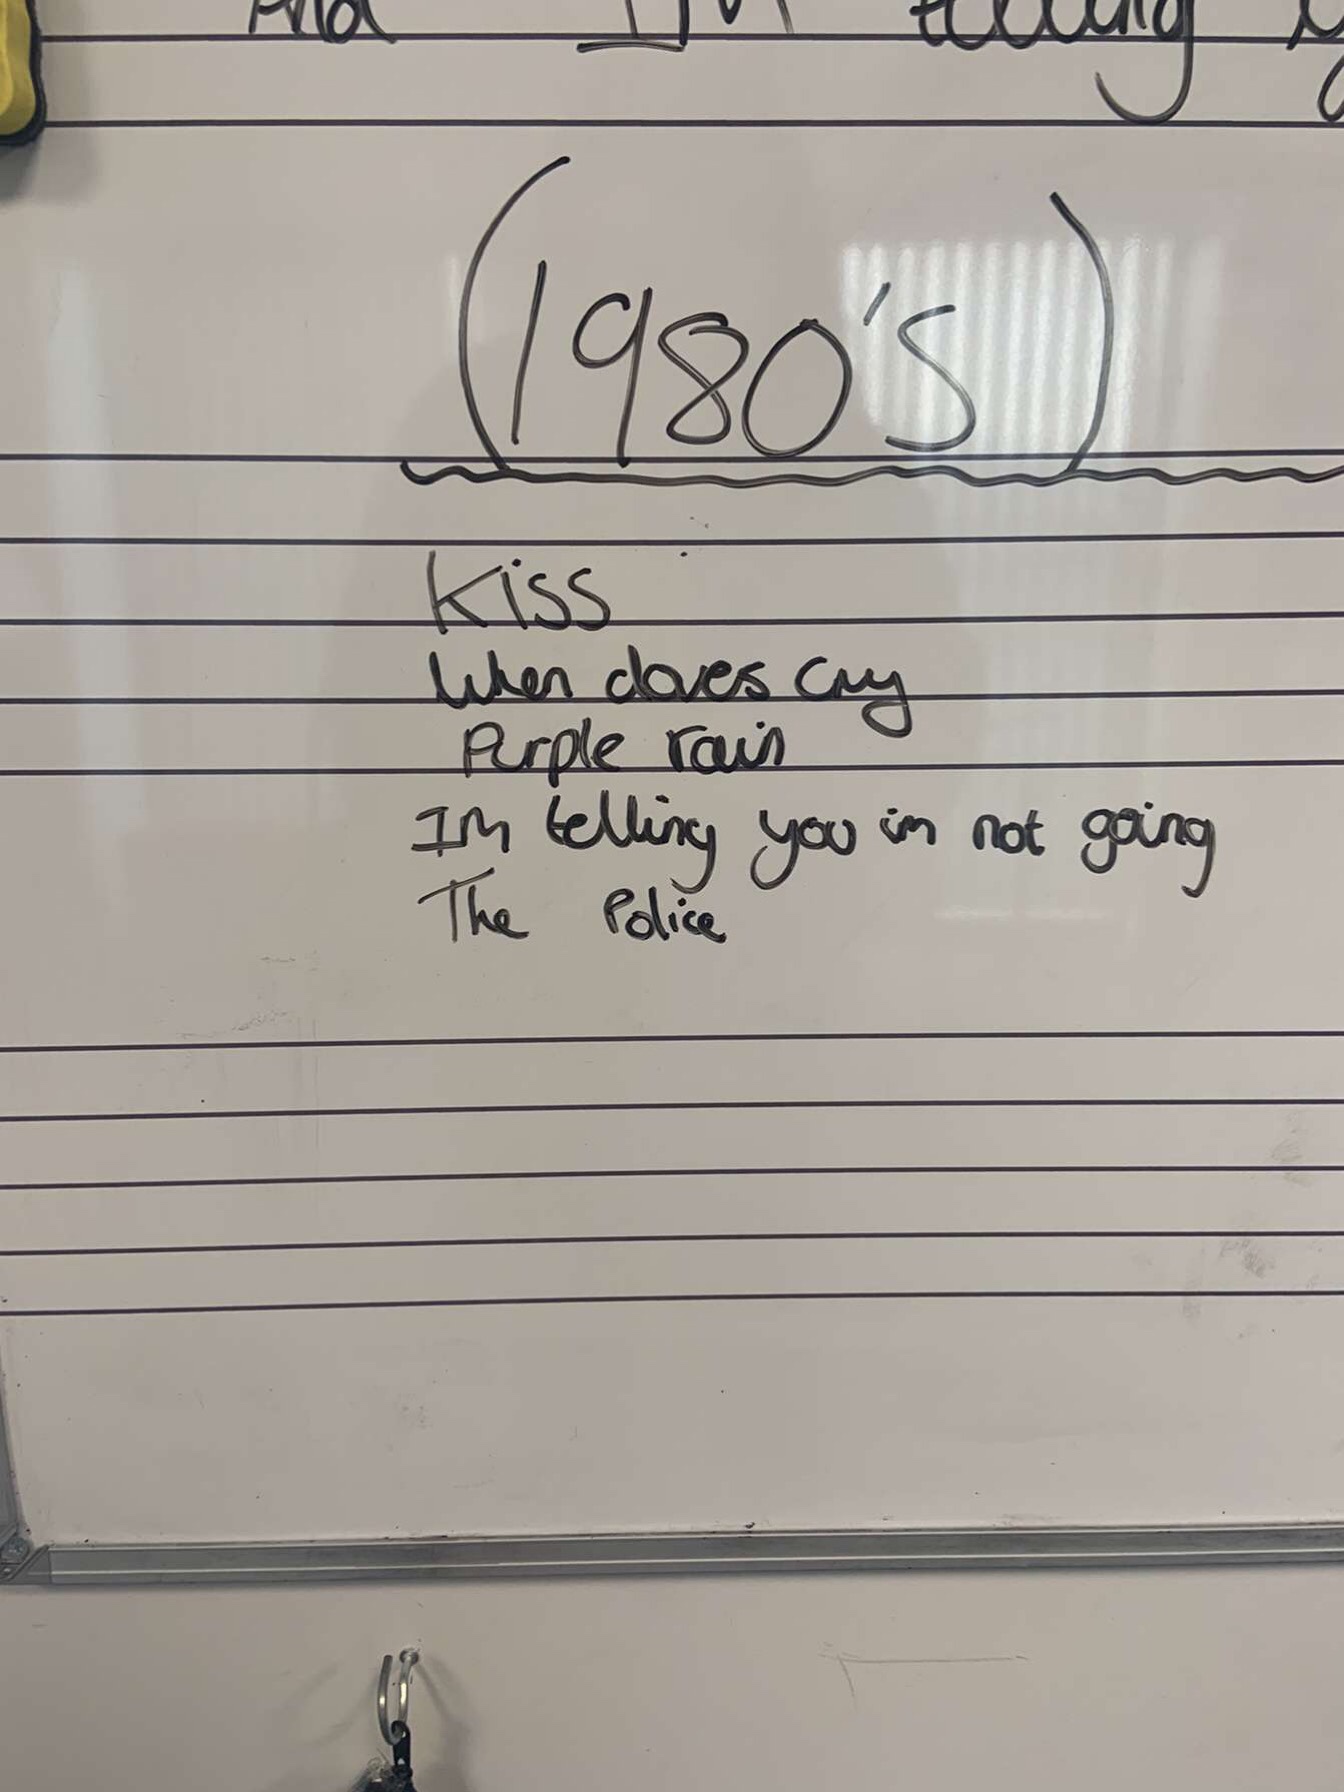 And I'm telling
(1980's)
Kiss
When doves cry
Purple rain
IM telling you im not going
The Police